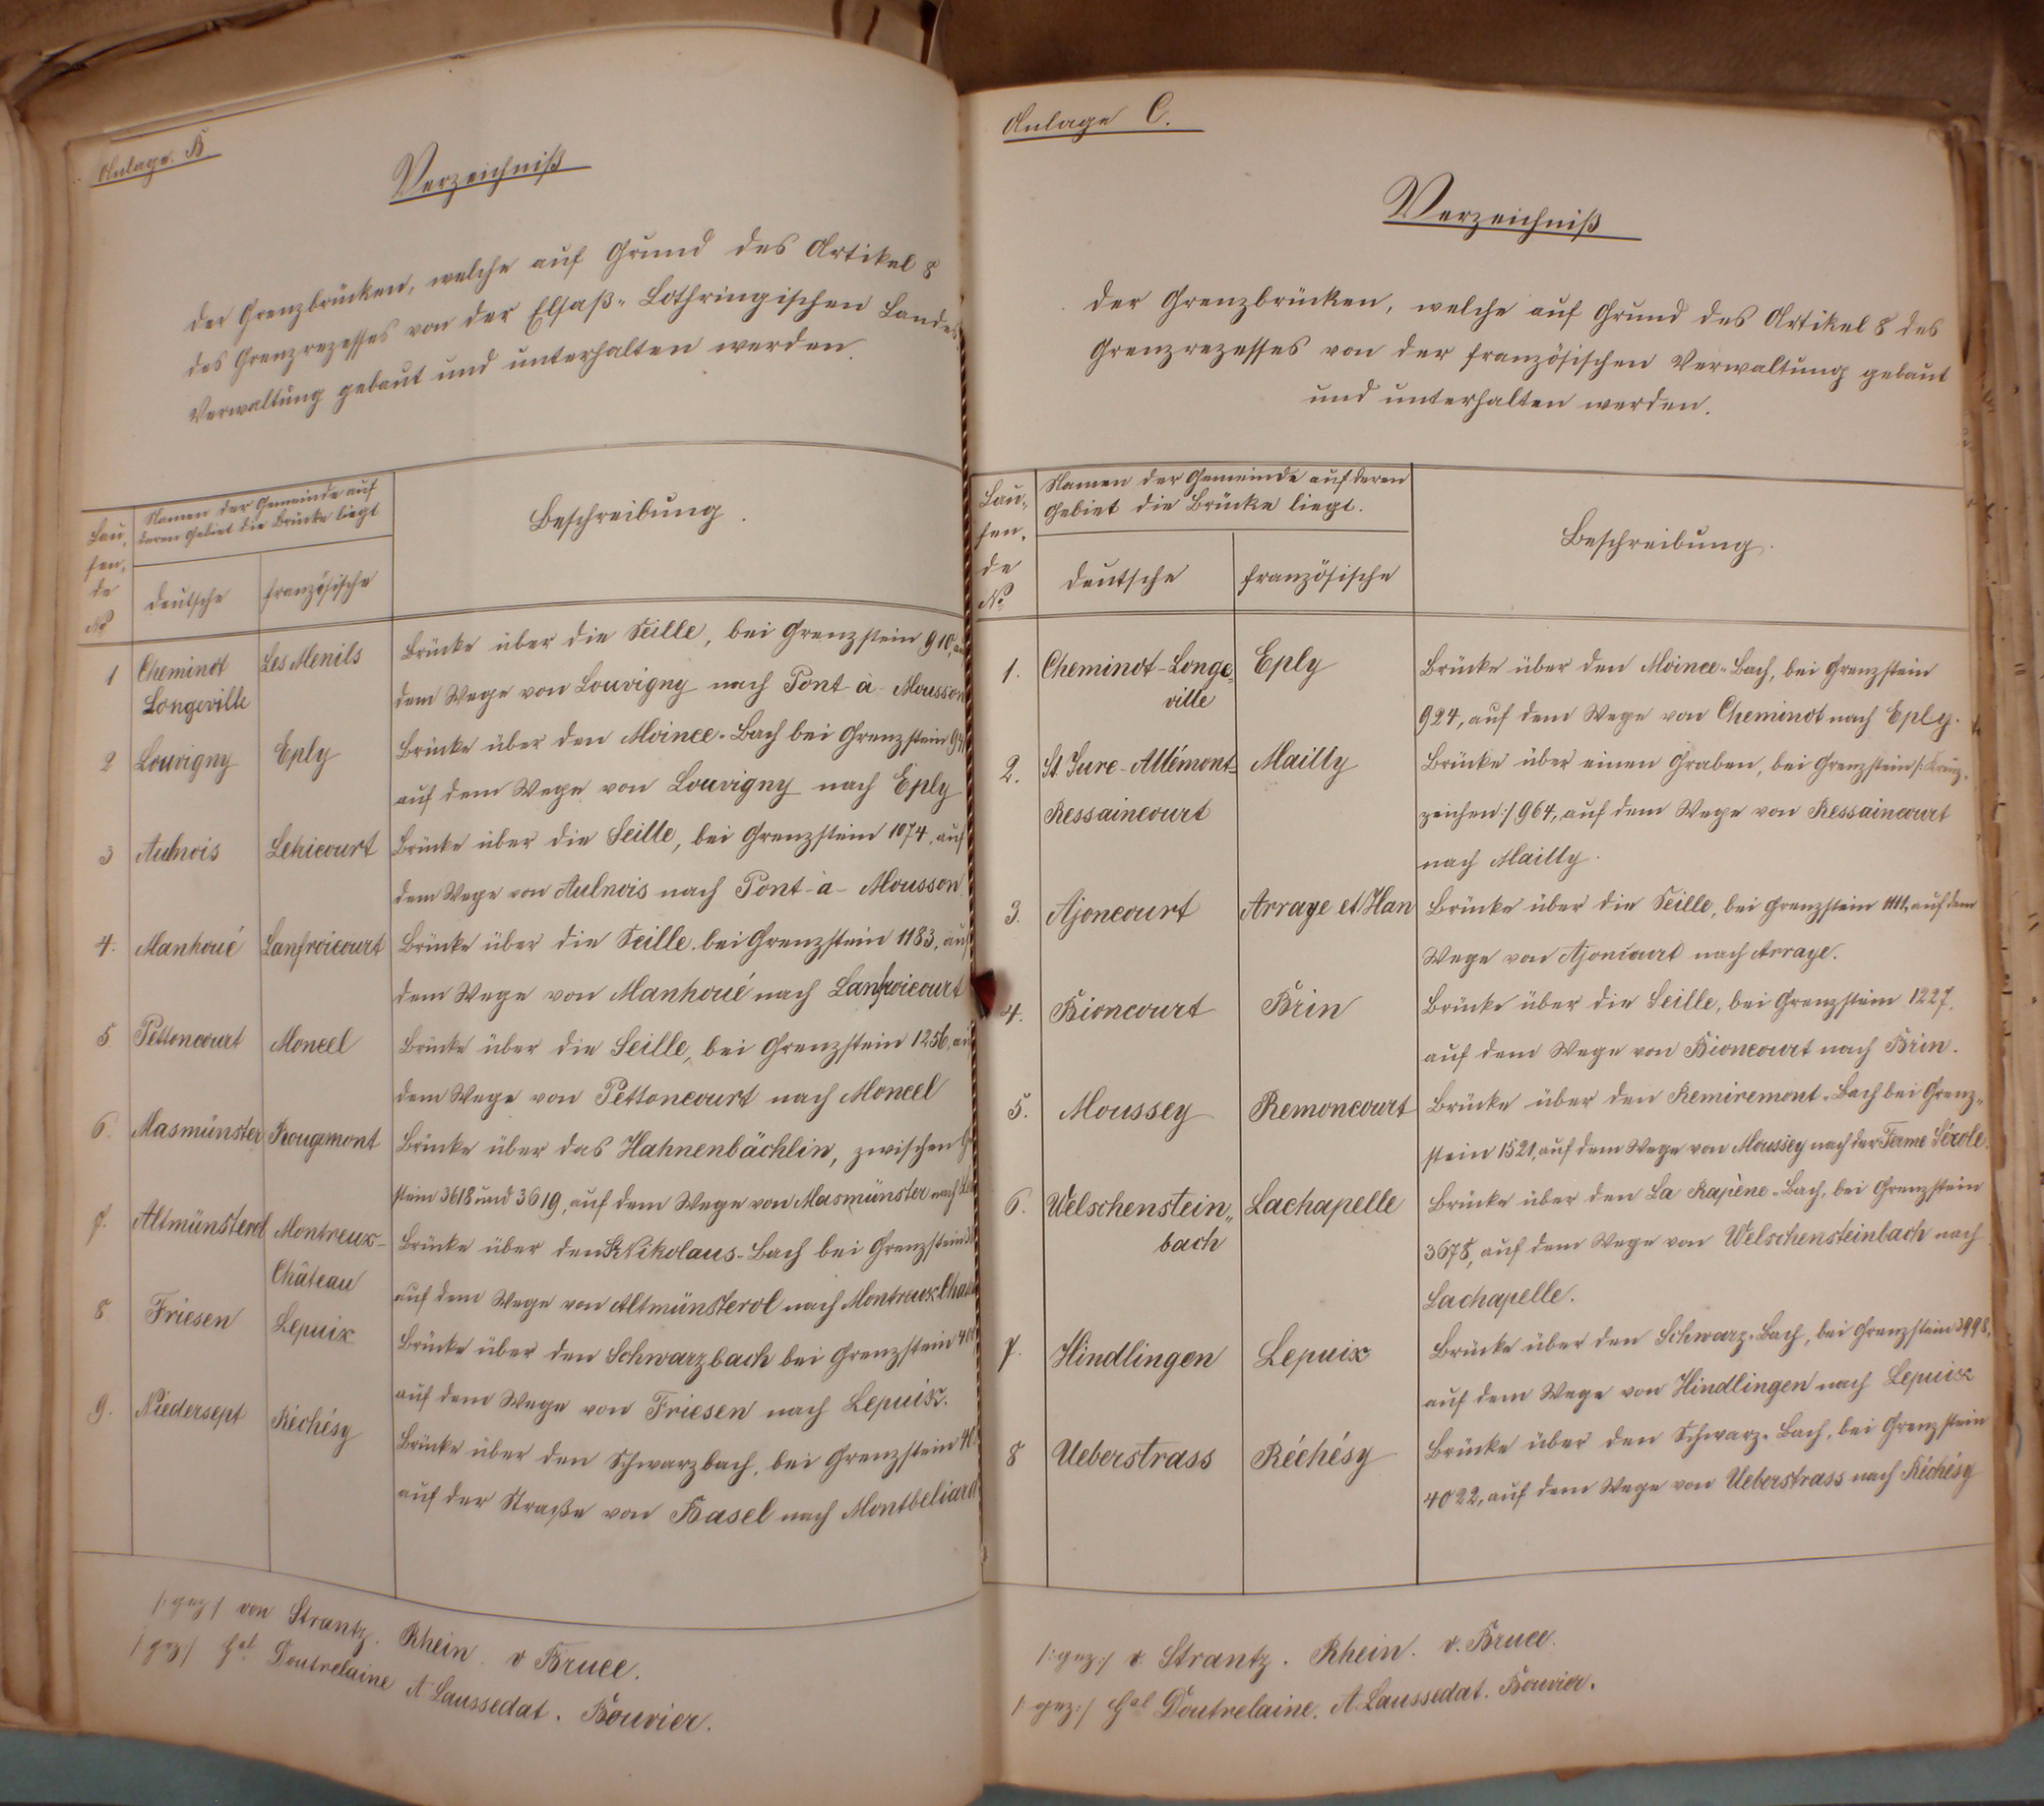 Anlage. B
Verzeichniß
der Grenzbrücken, welche auf Grund des Artikel 8
des Grenzrezesses von der Elsaß-Lothringischen Landes
Verwaltung gebaut und unterhalten werden.
Lau-
fen-
de
No
Namen der Gemeinde auf
deren Gebiet die Brücke liegt
deutsche
französische
Beschreibung.
1 Cheminot Les Menils Brücke über die Seille, bei Grenzstein 910,
Longeville dem Wege von Louvigny nach Pont-à-Mousson
2 Louvigny Eply Brücke über den Moince-Bach bei Grenzstein
auf dem Wege von Louvigny nach Eply
3 Aulnois Letricourt Brücke über die Seille, bei Grenzstein 1074, auf
dem Wege von Aulnois nach Pont-à-Mousson
4. Manhoué Lanfroicourt Brücke über die Seille bei Grenzstein 1183, auf
dem Wege von Manhoué nach Lanfroicourt
5 Pettoncourt Moncel Brücke über die Seille, bei Grenzstein 1256,
dem Wege von Pettoncourt nach Moncel
6. Masmünster Rougemont Brücke über das Hahnenbächlin, zwischen
stein 3618 und 3619, auf dem Wege von Masmünster nach
7. Altmünsterol Montreux- Brücke über den St Nikolaus-Bach bei Grenzstein
Château auf dem Wege von Altmünsterol nach Montreux
8 Friesen Lepuix Brücke über den Schwarzbach bei Grenzstein
auf dem Wege von Friesen nach Lepuix.
9. Niedersept Réchésy Brücke über den Schwarzbach, bei Grenzstein
auf der Straße von Basel nach Montbeliard
/:gez:/ von Strantz. Rhein. v Bruce.
/:gez:/ Gal Doutrelaine A Laussedat. Bouvier.
Anlage C.
Verzeichniß
der Grenzbrücken, welche auf Grund des Artikel 8 des
Grenzrezesses von der französischen Verwaltung gebaut
und unterhalten werden.
Lau-
fen-
de
No
Namen der Gemeinde auf deren
Gebiet die Brücke liegt.
deutsche
französische
Beschreibung.
1. Cheminot-Longe- Eply Brücke über den Moince-Bach, bei Grenzstein
ville 924, auf dem Wege von Cheminot nach Eply.
2. St. Jure-Allémont- Mailly Brücke über einen Graben, bei Grenzstein /:Kreuz-
Ressaincourt zeichen:/ 964, auf dem Wege von Ressaincourt
nach Mailly.
3. Ajoncourt Arraye et Han Brücke über die Seille, bei Grenzstein 1111, auf dem
Wege von Ajoncourt nach Arraye.
4. Bioncourt Brin Brücke über die Seille, bei Grenzstein 1227,
auf dem Wege von Bioncourt nach Brin.
5. Moussey Remoncourt Brücke über den Remiremont-Bach bei Grenz-
stein 1521, auf dem Wege von Moussey nach der Ferme Sérole.
6. Welschenstein- Lachapelle Brücke über den La Rapène-Bach, bei Grenzstein
bach 3678, auf dem Wege von Welschensteinbach nach
Lachapelle.
7. Hindlingen Lepuix Brücke über den Schwarz-Bach, bei Grenzstein 3998,
auf dem Wege von Hindlingen nach Lepuix
8 Ueberstrass Réchésy Brücke über den Schwarz-Bach, bei Grenzstein
4022, auf dem Wege von Ueberstrass nach Réchésy
/:gez:/ v. Strantz. Rhein. v. Bruce.
/:gez:/ Gal Doutrelaine. A. Laussedat. Bouvier.